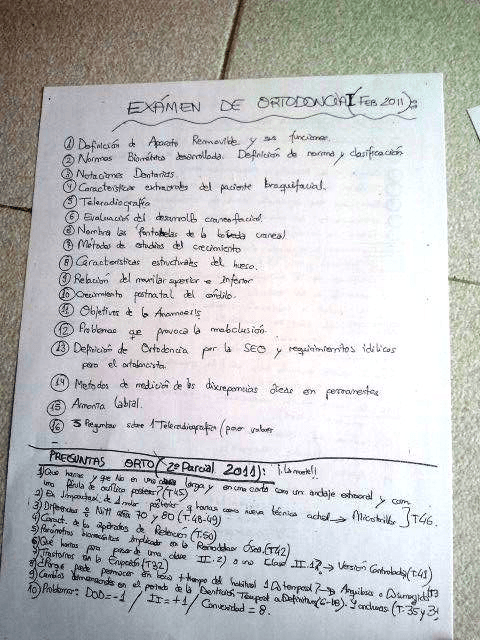 EXÁMEN DE ORTODONCIA I (FEB 2011):
① Definición de Aparato Removible y sus funciones.
② Normas Biométrica desarrollada. Definición de norma y clasificación
③ Notaciones Dentarias.
④ Características extraorales del paciente braquifacial.
⑤ Teleradiografía
⑥ Evaluación del desarrollo craneofacial.
⑥ Nombra las fontanelas de la bóveda craneal
⑦ Métodos de estudios del crecimiento
⑧ Características estructurales del hueso.
⑨ Relación del maxilar superior e inferior
⑩ Crecimiento postnatal del cóndilo.
⑪ Objetivos de la Anamnesis
⑫ Problemas que provoca la maloclusión.
⑬ Definición de Ortodoncia por la SEO y requirimientos idílicos
para el ortodoncista.
⑭ Metodos de medición de las discrepancias óseas en permanentes
⑮ Armonia Labial.
⑯ 3 Preguntas sobre 1 Teleradiografía (poner valores
PREGUNTAS ORTO (2º Parcial 2011): ¡La muerte!!
1) Qué harias y que No en una cara larga y en una corta con un anclaje extraoral y con
una férula de acrílico postero? (T.45)
2) Ex. Impactado de 1 molar posterior q harias como nueva técnica actual → Microtornillo ] T46.
3) Diferencias Niti años 70 y 80 (T.48-49)
4) Caract. de los aparatos de Retención (T.50)
5) Parámetros biomecánicos implicados en la Remodelación Ósea (T.42)
6) Qué harías para pasar de una clase II.2) a una Clase II.1? → Versión Controlada (T.41)
7) Trastornos en la Erupción (T.32)
8) Porque puede permanecer en boca + tiempo del habitual 1 D. temporal? → Anquilosis o Sumergido
9) Cambios dimensionales en el periodo de la Dentición Temporal a Definitiva (6-18). Y anchuras (T.35 y
10) Problema: DOD=-1 / II=+1 / Convexidad = 8.